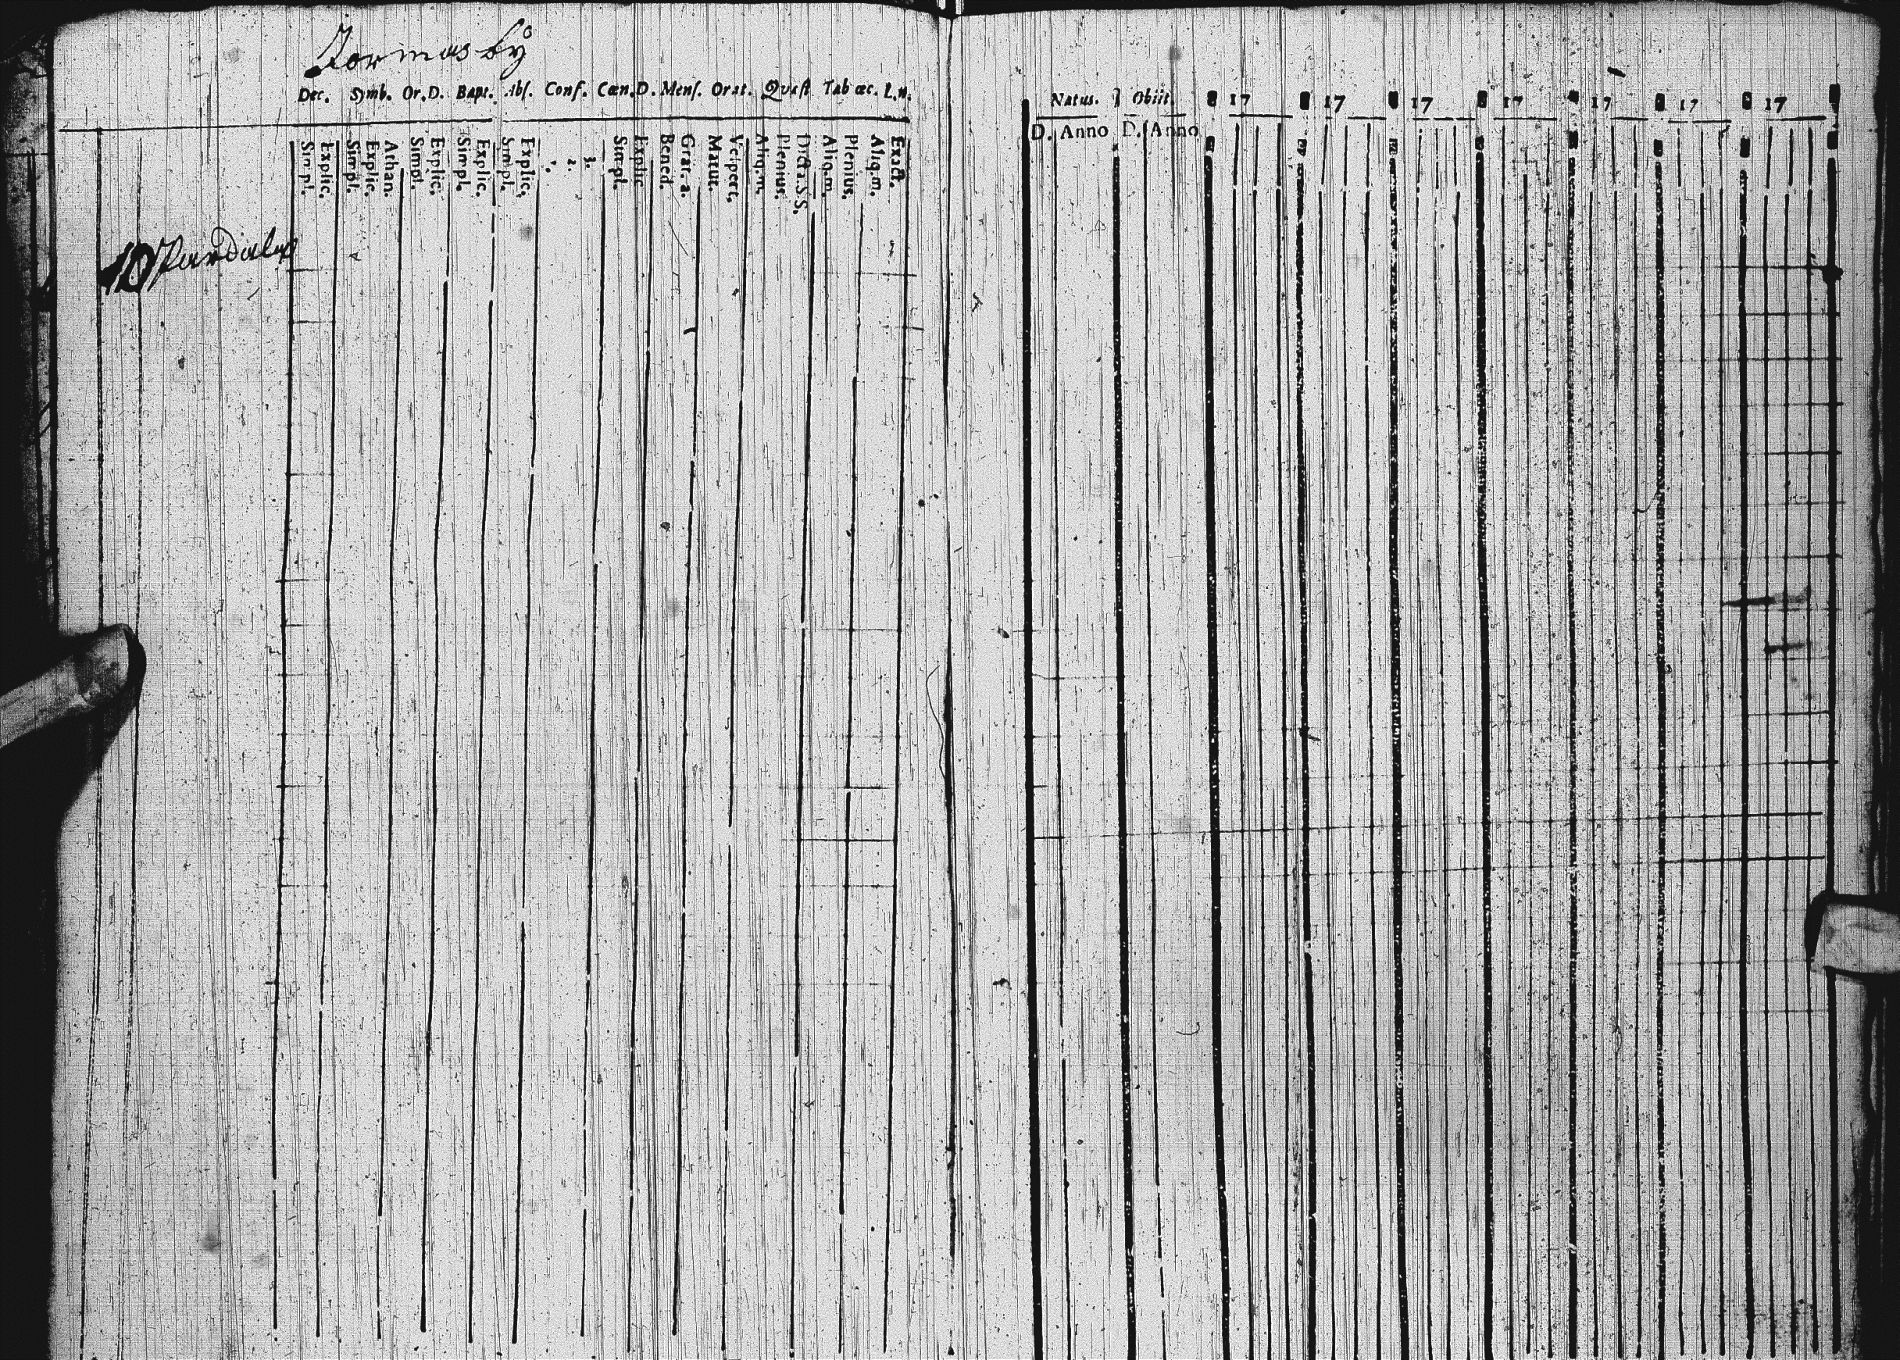 Tormasby
Dec. Symb. Or.D. Bapt. Abs. Conf. Cœn.D. Mens. Orat. Quæst. Tab œc. L.n.
Simpl. Explic. Simpl. Explic. Athan. Simpl. Explic. Simpl. Explic. Simpl. Explic. 1. 2. 3. Simpl. Explic Bened. Grat. a. Matut. Vespert. Aliq.m. Plenius. Dicta.S.S. Aliq.m. Plenius. Aliq.m. Exact.
Natus. Obiit. 17 17 17 17 17 17 17
D. Anno D. Anno